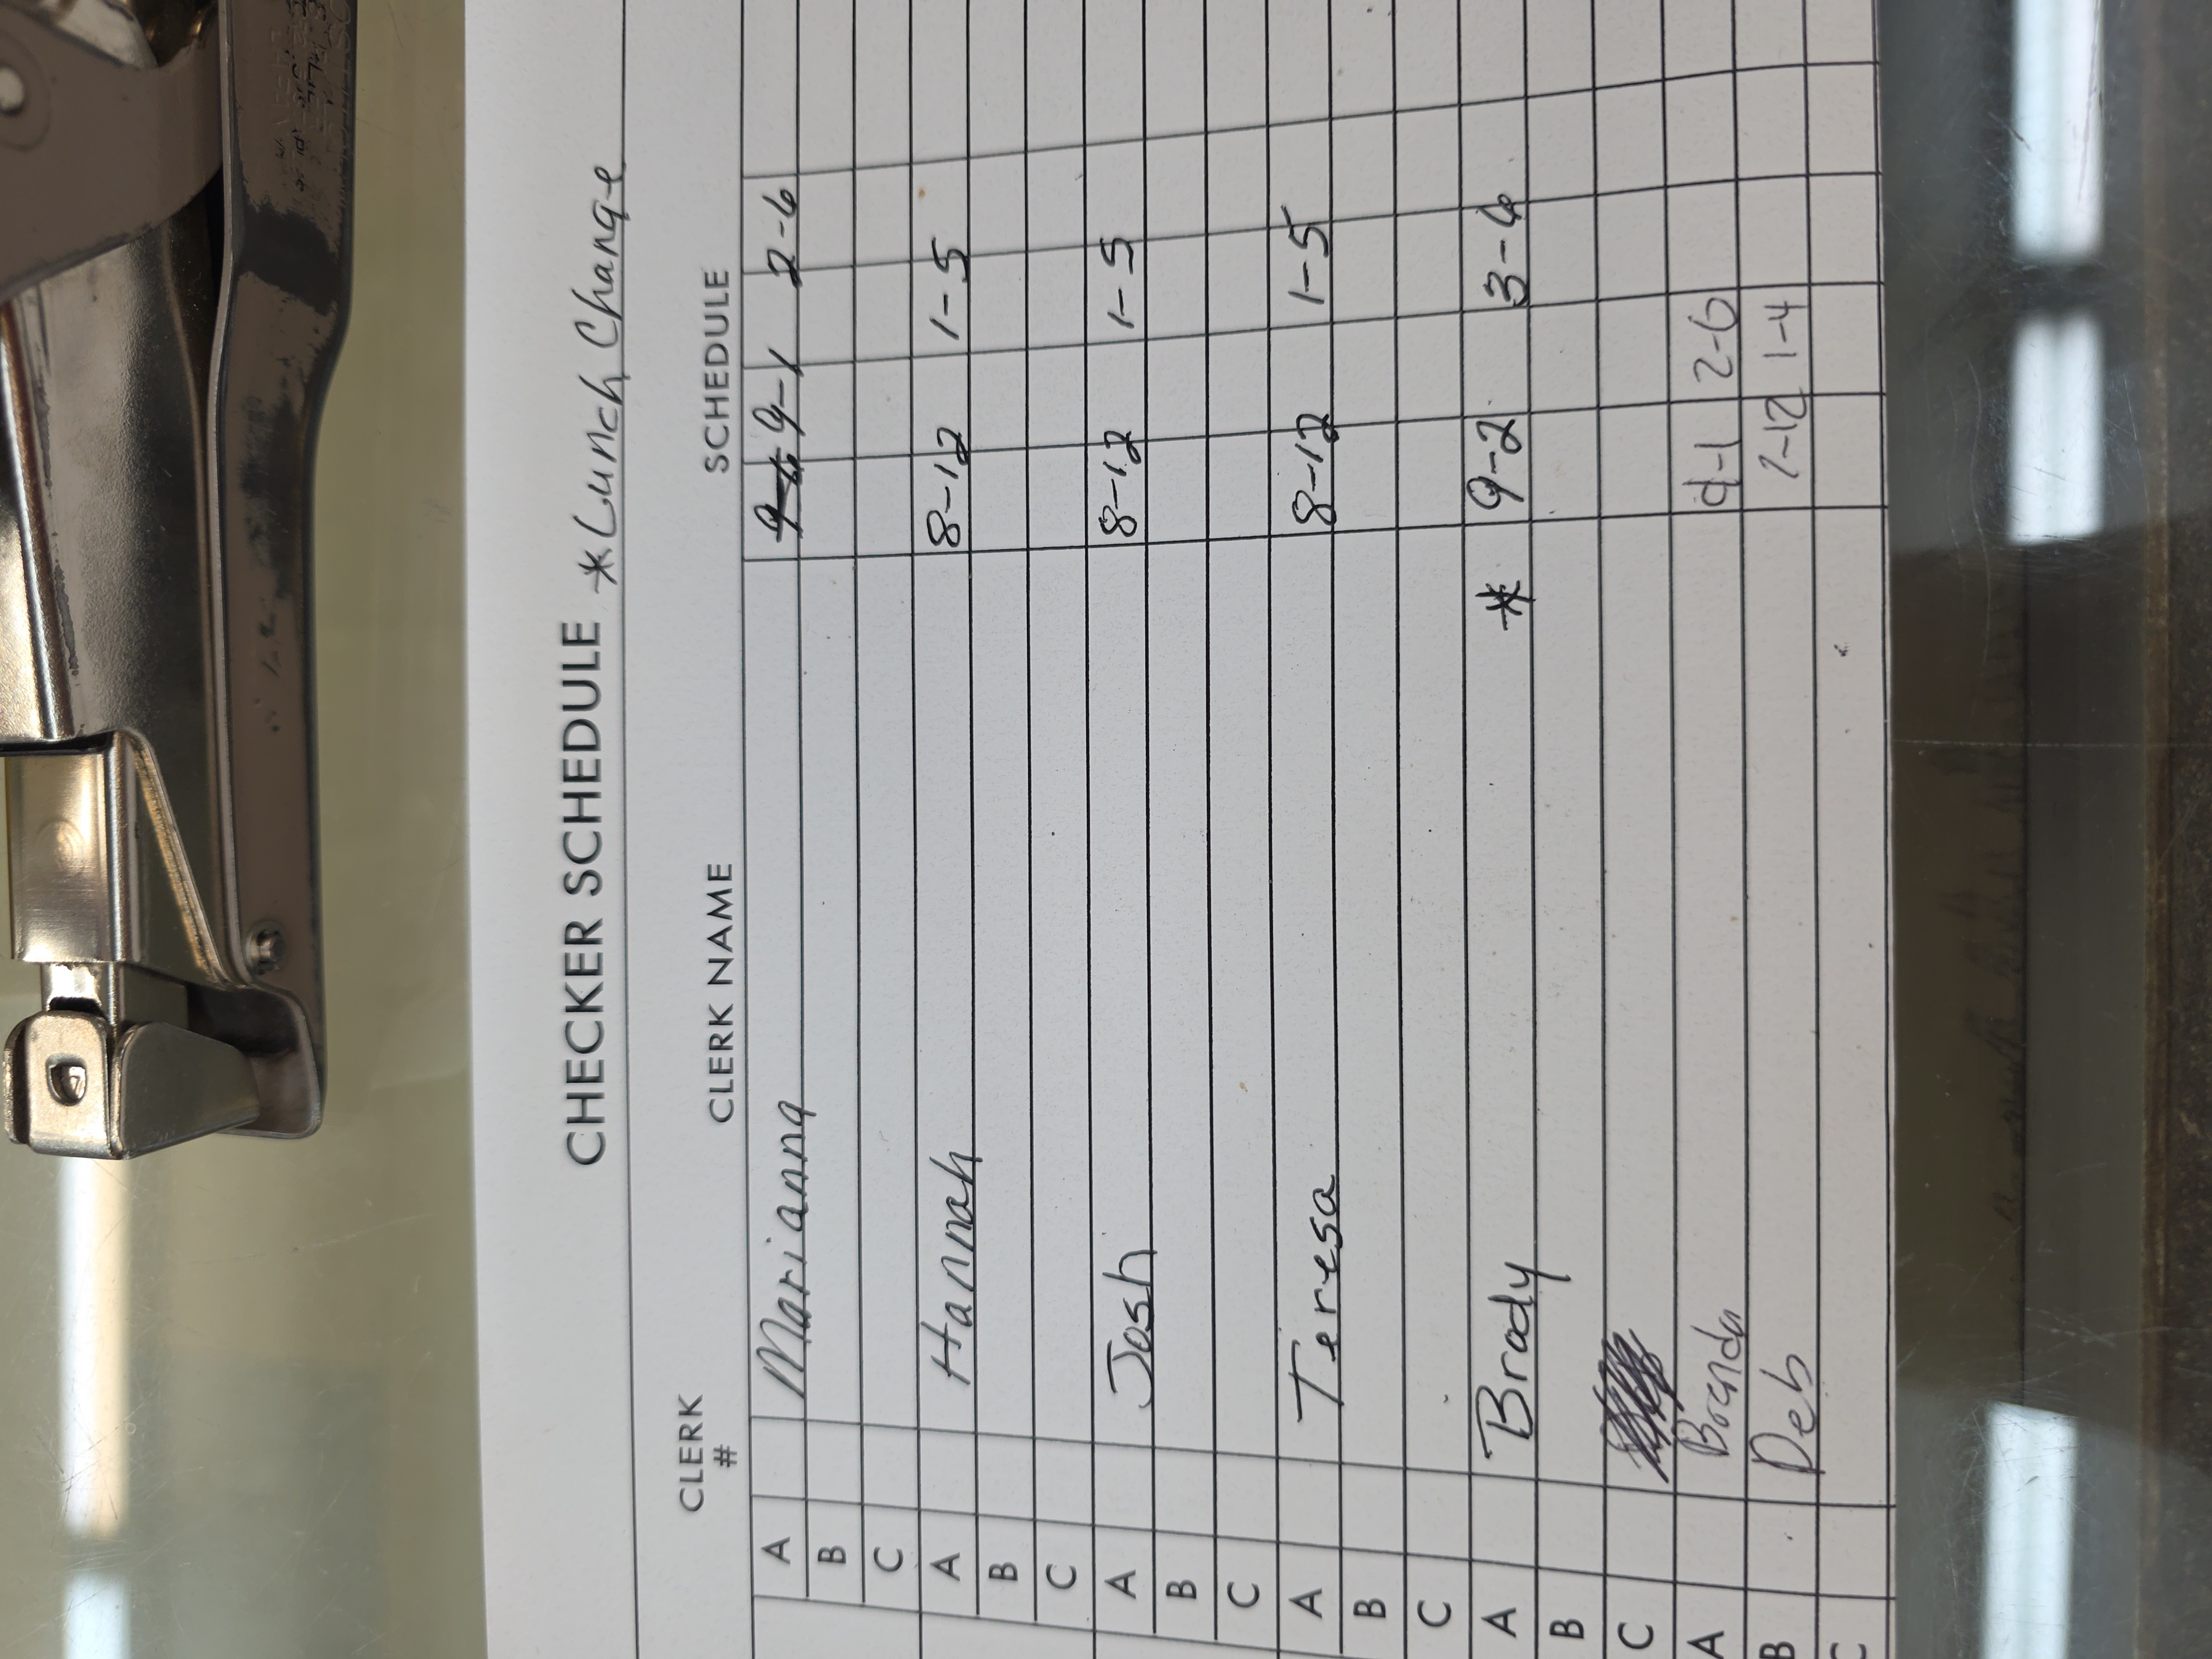 CHECKER SCHEDULE *Lunch Change
CLERK # CLERK NAME SCHEDULE
A Marianna 9-6 9-1 2-6
B
C
A Hannah 8-12 1-5
B
C
A Josh 8-12 1-5
B
C
A Teresa 8-12 1-5
B
C
A Brody * 9-2 3-6
B
C
A Brenda 9-1 2-6
B Deb 7-12 1-4
C